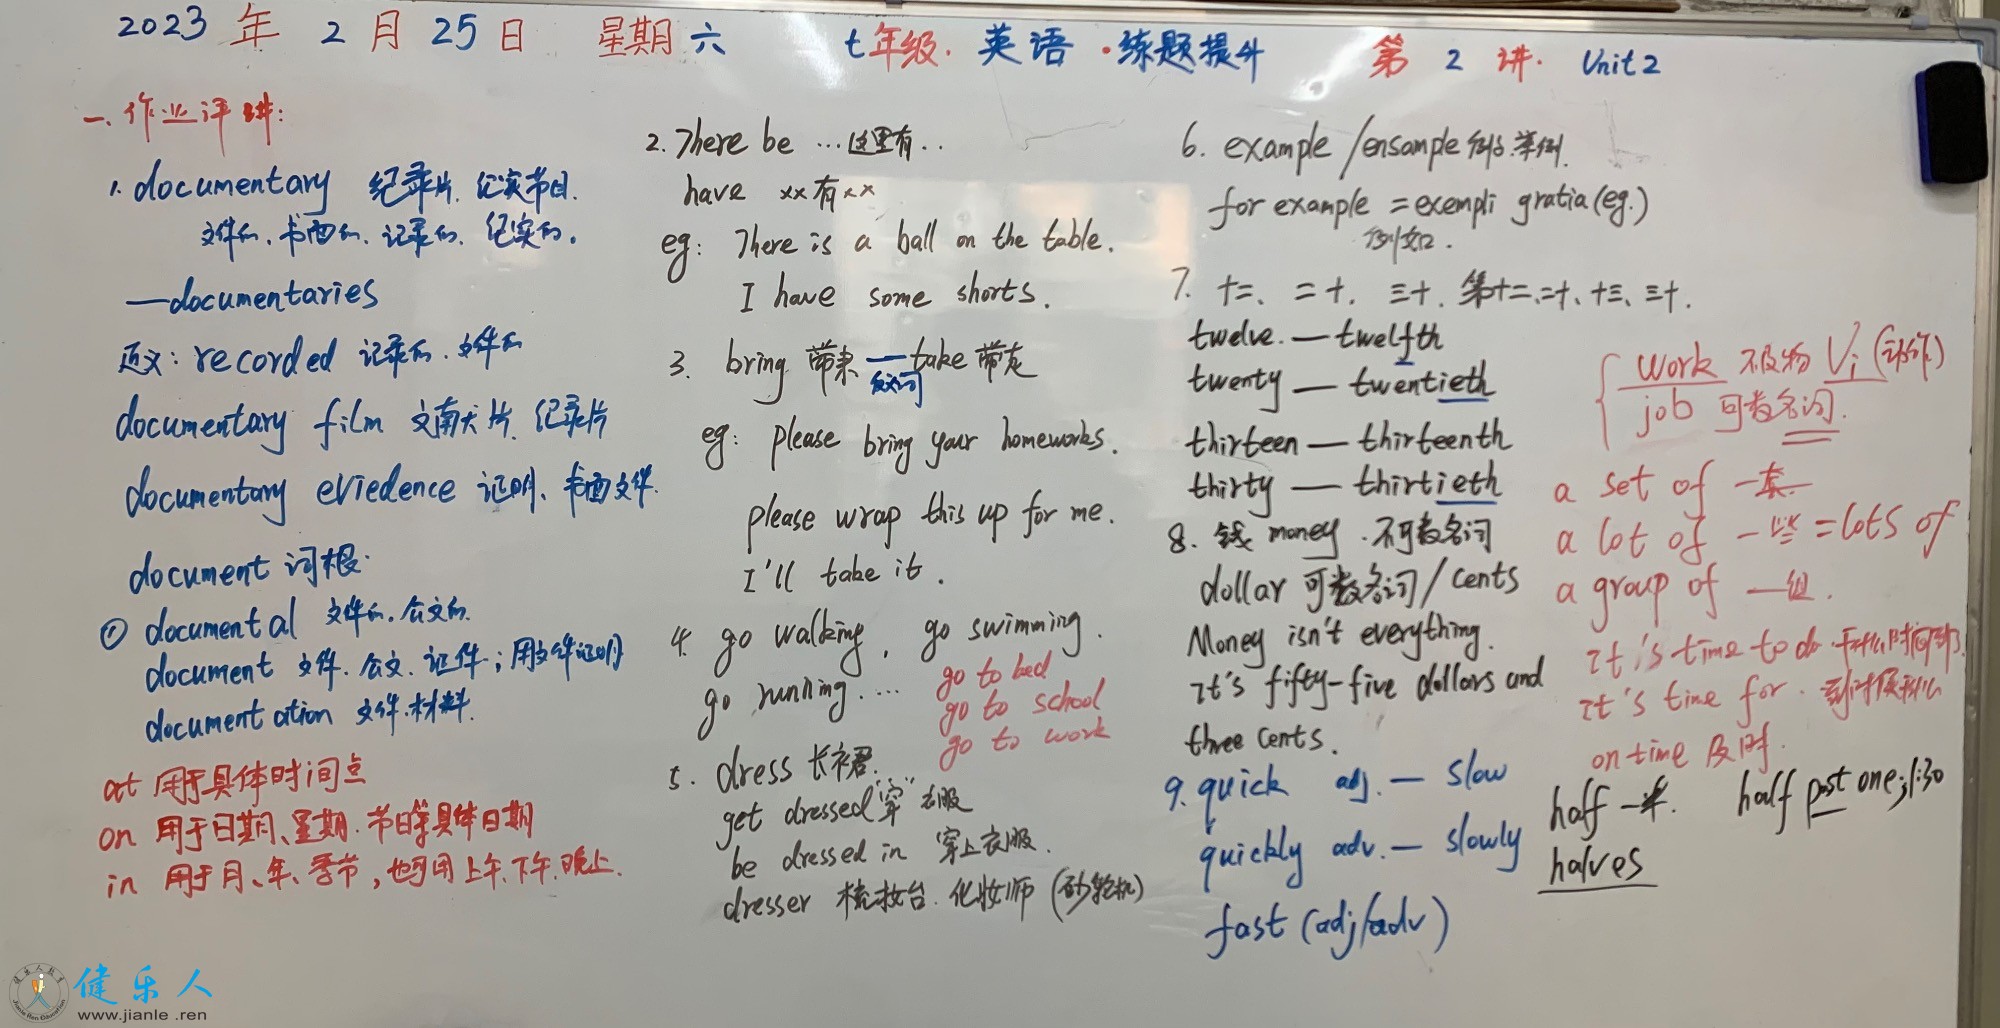 2023 年 2 月 25 日 星期六 七年级·英语·练题提升 第 2 讲· Unit2
一、作业评讲:
1. documentary 纪录片、纪实节目.
文件的、书面的、记录的、纪实的.
—documentaries
近义: recorded 记录的、文件的
documentary film 文南大片、纪录片
documentary eviedence 证明、书面文件.
document 词根·
① documental 文件的、公文的.
document 文件、公文、证件；用文件证明
documentation 文件材料.
at 用于具体时间点
on 用于日期、星期、节日等具体日期
in 用于月、年、季节，也可用上午、下午、晚上.
2. There be …这里有..
have xx有xx
eg: There is a ball on the table.
I have some shorts.
3. bring 带来 — take 带走
反义词
eg: please bring your homeworks.
please wrap this up for me.
I'll take it.
4. go walking, go swimming.
go running. …
go to bed
go to school
go to work
5. dress 长裙.
get dressed "穿"衣服
be dressed in 穿上衣服.
dresser 梳妆台、化妆师 (砂轮机)
6. example /ensample 例子、举例.
for example = exempli gratia (eg.)
例如.
7. 十二、二十、三十、第十二、二十、十三、三十.
twelve. — twelfth
twenty — twentieth
thirteen — thirteenth
thirty — thirtieth
8. 钱 money . 不可数名词
dollar 可数名词/cents
Money isn't everything.
It's fifty-five dollars and
three cents.
9. quick adj. — slow
quickly adv. — slowly
fast (adj/adv)
work 不及物 Vi (动词)
job 可数名词.
a set of 一套
a lot of 一些 = lots of
a group of 一组.
It's time to do 干什么时间到了.
It's time for.
on time 及时.
half 一半. half past one; 1:30
halves
健乐人
www.jianle.ren